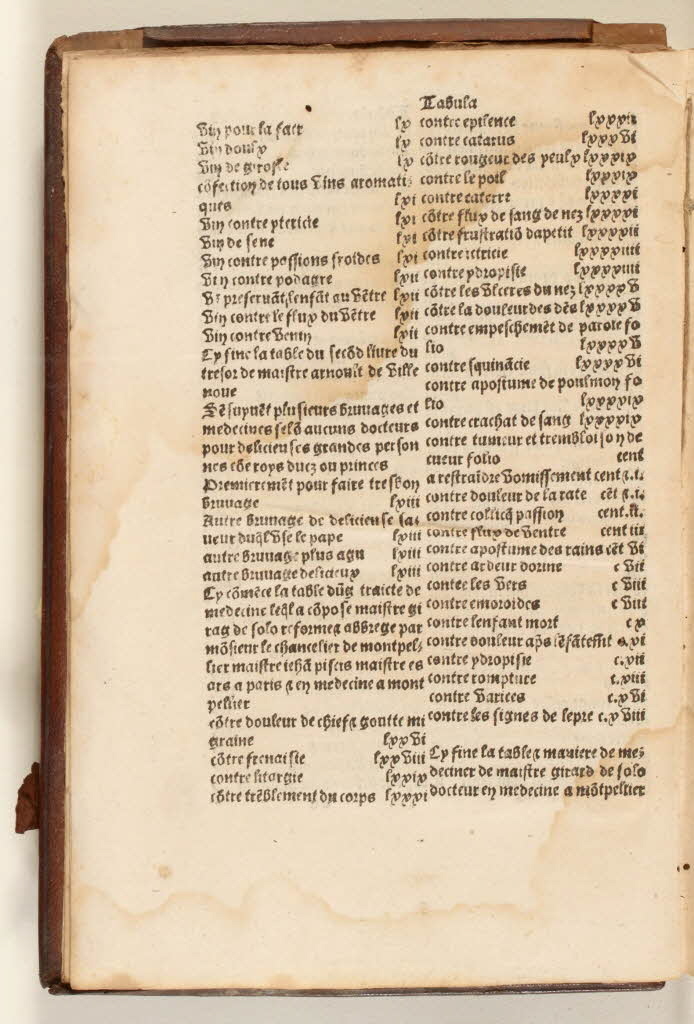 Tabula
Vin pour la face lx
Vin doulx lx
Vin de girofle lx
cōfection de tous vins aromati-
ques lxi
Vin contre ptericie lxi
Vin de sene lxi
Vin contre passions froides lxi
Vin contre podagre lxii
Vī preseruāt lenfāt au vētre lxii
Vin contre le flux du vētre lxii
Vin contre venin lxii
Cy fine la table du secōd liure du
tresor de maistre arnoult de ville
noue
Sēsuyuēt plusieurs bruuages et
medecines selō aucuns docteurs
pour delicieuses grandes person
nes cōe roys ducz ou princes
Premieremēt pour faire tresbon
bruuage lxiii
Autre bruuage de delicieuse sa-
ueur duq̄l vse le pape lxiii
autre bruuage plus agu lxiii
autre bruuage delicieux lxiii
Cy cōmēce la table dūg traicte de
medecine leq̄l a cōpose maistre gi
rag de solo reformea abbrege par
mōsieur le chancelier de montpel-
lier maistre iehā piscis maistre es
ars a paris ⁊ en medecine a mont
pellier
cōtre douleur de chief⁊ goutte mi
graine lxxvi
cōtre frenaisie lxxviii
contre litargie lxxix
cōtre trēblement du corps lxxxi
contre epilence lxxxii
contre catarus lxxxvi
cōtre rougeur des yeulx lxxxix
contre le poil lxxxix
contre caterre lxxxxi
cōtre flux de sang de nez lxxxxvi
cōtre frustratiō dapetit lxxxxii
contre ictricie lxxxxiiii
contre ydropisie lxxxxiiii
cōtre les vlceres du nez lxxxxv
cōtre la douleur des dēs lxxxxv
contre empeschemēt de parole fo
lio lxxxxv
contre squināćie lxxxxvi
contre apostume de poulmon fo
lio lxxxxix
contre crachat de sang lxxxxix
contre tumeur et trembloison de
cueur folio cent
a restraīdre vomissement cent ⁊.i.
contre douleur de la rate cēt ⁊.i.
contre collicq̄ passion cent.ii.
contre flux de ventre cent iii
contre apostume des rains cēt vi
contre ardeur dorine c viii
contee les vers c viii
contre emoroides c viii
contre lenfant mort c x
contre douleur ap̄s lēfātemēt c.xi
contre ydropisie c.xii
contre rompture c.xiii
contre varices c.xvi
contre les signes de lepre c.xviii
Cy fine la table⁊ maniere de me-
deciner de maistre girard de solo
docteur en medecine a mōtpellier